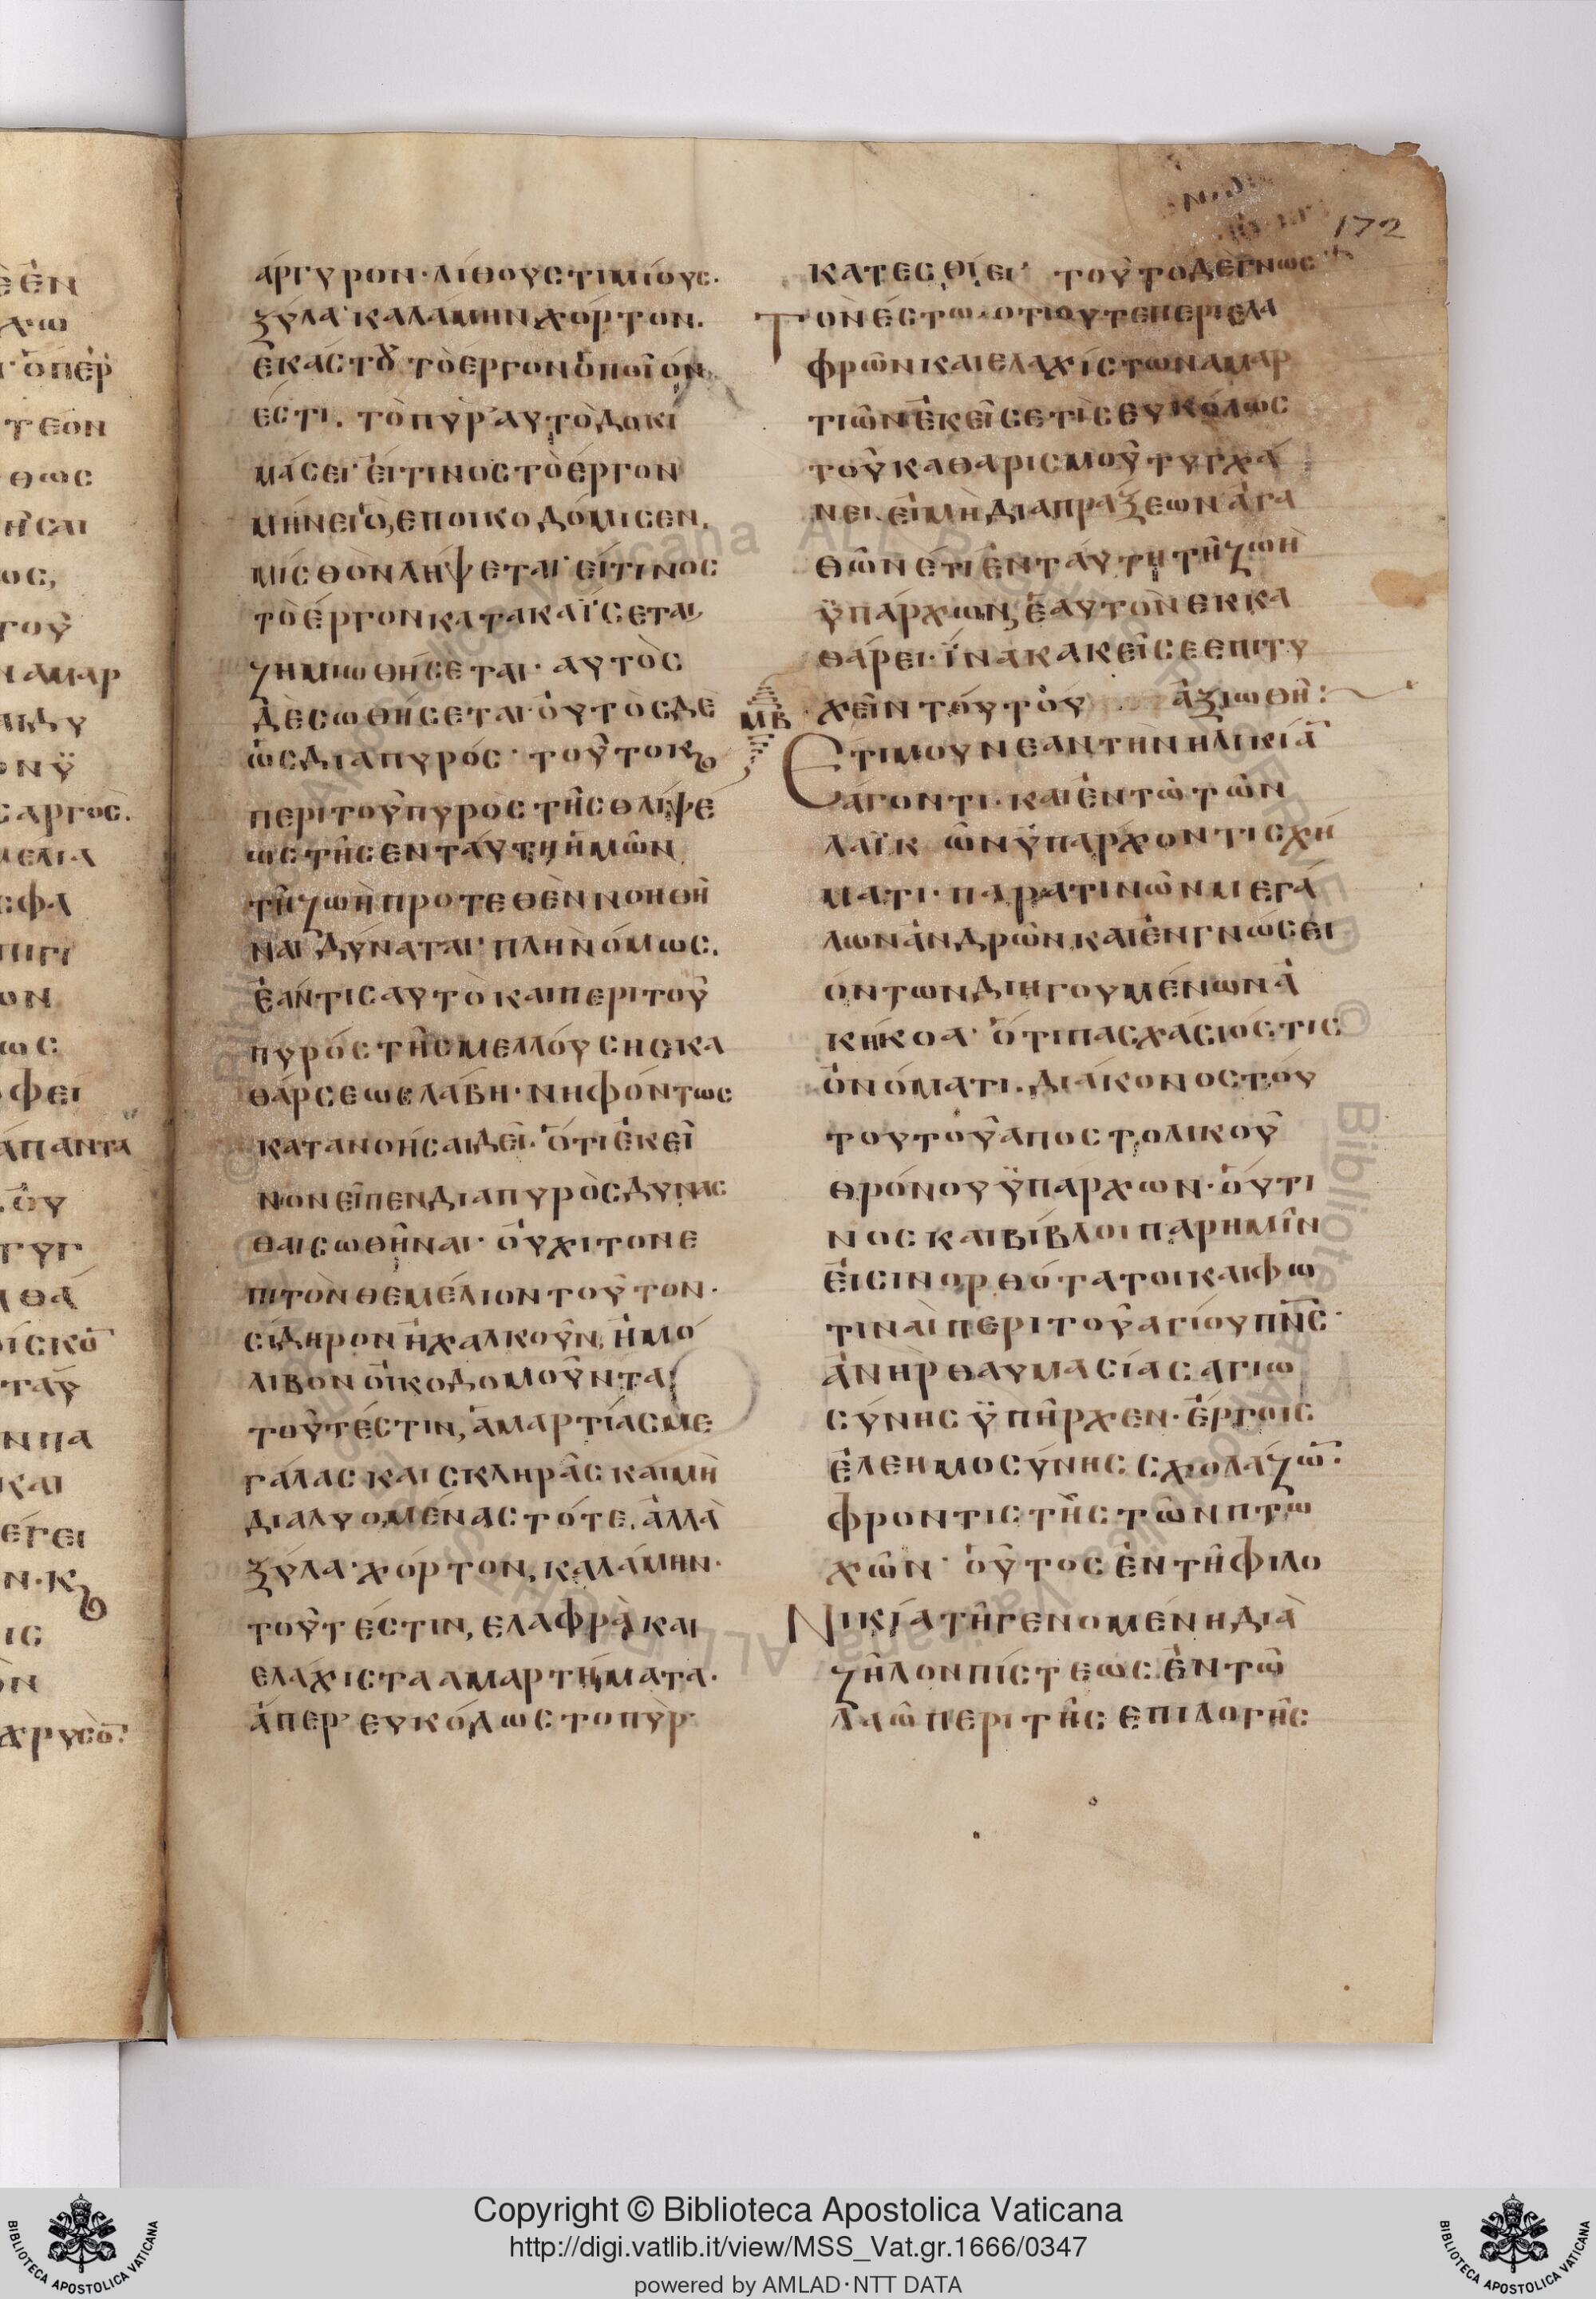 172
ἀργυρον· λίθους τιμίους.
ξύλα· καλάμην χόρτον.
ἑκάστȣ τὸ ἔργον ὁποῖον
ἐστι. τὸ πῦρ αυτὸ δοκι
μάσει· εί τινος τὸ έργον
μηνει ὃ εποικοδόμισεν.
μισθὸν λήψεται· εί τινος
τὸ έργον κατακαϊσεται
ζημιωθήσεται· αυτὸς
δὲ σωθήσεται· οὑτὸς δὲ
ὡς δια πυρός· τοῦτο κ
περι τοῦ πυρὸς τῆς θλίψέ
ως τῆς ενταύτη ἡμῶν
τῆ ζωὴ προτεθὲν νοηθῆ
ναι δύναται· πλὴν όμως.
ἐάν τις αυτὸ και περι τοῦ
πυρός τῆς μελλόυσης κα
θάρσεως λάβη· νηφόντως
κατανοήσαι δεῖ· ὅτι ἐκεῖ
νον εἶπεν δια πυρὸς δυνας
θαι σωθῆναι· οὐχι τον ε
πι τὸν θεμέλιον τοῦτον·
σίδηρον ἢ χαλκοῦν, ἢ μό
λιβον οἰκοδομοῦντα
τοῦτέστιν, ἁμαρτίας με
γάλας και σκληρᾶς και μὴ
διαλυομένας τότε. ἀλλὰ
ξύλα· χόρτον, καλάμην·
τοῦτ έστιν, ελαφρὰ και
ελάχιστα αμαρτήματα·
ἁπερ ευκόλως το πῦρ
κατεσθίει· τοῦτο δε γνως
Τὸν έστω· οτι ουτε περι ελα
φρῶν και ελαχίστων αμαρ
τιῶν ἐκεῖσε τὶς ευκόλως
τοῦ καθαρισμοῦ τυγχά
νει. εἰ μὴ δια πράξεων ἀγα
θῶν έτι ἐν ταύτη τῆ ζωὴ
ϋπάρχων, ἑαυτὸν εκκα
θάρει· ἵνα κακεῖσε επιτυ
χεῖν τόυτόυ ἀξιωθῆ:
ΜΒ
Ετι μου νεαν την ηλικίᾱ
άγοντι· και ἐν τῶ τῶν
λαϊκῶν ϋπάρχοντι σχή
ματι· παρα τινῶν μεγά
λων ἀνδρῶν και ἐν γνώσει
όντων διηγουμένων ἀ
κήκοα· ὅτι πασχάσιός τις
ὀνόματι. διάκονος τόυ
του τοῦ αποστολικοῦ
θρόνου ϋπάρχων· ὁύτι
νος και βίβλοι παρημῖν
εἰσιν ορθότατοι και φω
τιναὶ περι τοῦ αγίου πν̅ς·
ἀνὴρ θαυμασίας αγιω
σύνης ϋπῆρχεν· ἔργοις
ἐλεημοσύνης σχολάζω̅·
φροντιστὴς τῶν πτω
χῶν· ὁῦτος ἐν τῆ φιλο
Νικίᾳ τῆ γενομένη, διὰ
ζῆλον πίστεως. ἐν τῶ
λαῶ περι τῆς επιλογῆς
Copyright © Biblioteca Apostolica Vaticana
http://digi.vatlib.it/view/MSS_Vat.gr.1666/0347
powered by AMLAD·NTT DATA
BIBLIOTECA APOSTOLICA VATICANA
BIBLIOTECA APOSTOLICA VATICANA